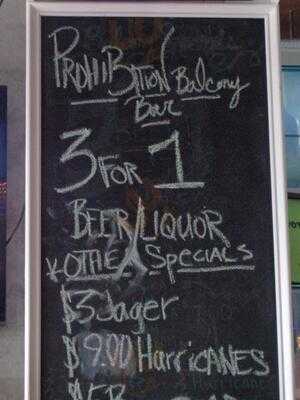 PROHIBITION Balcony
Bar
3 FOR 1
BEER / LIQUOR
* OTHER SPECIALS
$3 Jager
$9.00 HurricANES